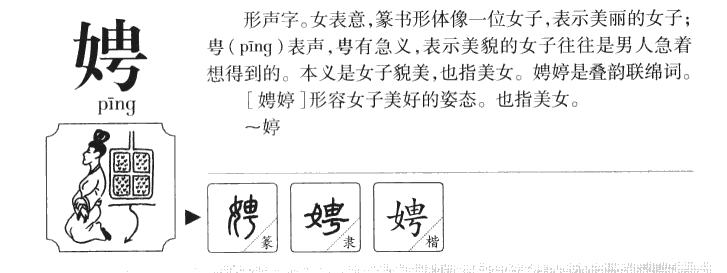 娉
pīng
形声字。女表意,篆书形体像一位女子,表示美丽的女子;
甹(pīng)表声,甹有急义,表示美貌的女子往往是男人急着
想得到的。本义是女子貌美,也指美女。娉婷是叠韵联绵词。
[娉婷]形容女子美好的姿态。也指美女。
～婷
娉 篆
娉 隶
娉 楷